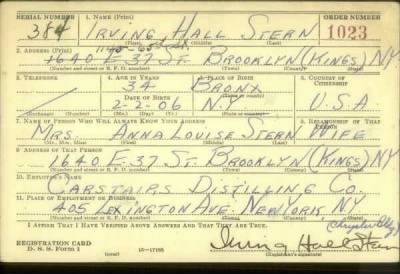 SERIAL NUMBER 1. NAME (Print) ORDER NUMBER
384 IRVING HALL STERN 1023
(First) (Middle) (Last)
2. ADDRESS (Print)
1640 E. 37 ST. BROOKLYN (KINGS) NY
(Number and street or R. F. D. number) (Town) (County) (State)
3. TELEPHONE 4. AGE IN YEARS 5. PLACE OF BIRTH 6. COUNTRY OF CITIZENSHIP
34 BRONX
DATE OF BIRTH (Town or county)
2-2-06 N.Y. U.S.A.
(Exchange) (Number) (Mo.) (Day) (Yr.) (State or country)
7. NAME OF PERSON WHO WILL ALWAYS KNOW YOUR ADDRESS 8. RELATIONSHIP OF THAT PERSON
MRS. ANNA LOUISE STERN WIFE
(Mr., Mrs., Miss) (First) (Middle) (Last)
9. ADDRESS OF THAT PERSON
1640 E. 37 ST. BROOKLYN (KINGS) NY
(Number and street or R. F. D. number) (Town) (County) (State)
10. EMPLOYER'S NAME
CARSTAIRS DISTILLING CO.
11. PLACE OF EMPLOYMENT OR BUSINESS
405 LEXINGTON AVE. NEW YORK, NY (Chrysler Bldg)
(Number and street or R. F. D. number) (Town) (County) (State)
I AFFIRM THAT I HAVE VERIFIED ABOVE ANSWERS AND THAT THEY ARE TRUE.
REGISTRATION CARD
D. S. S. Form 1 16-17105 Irving Hall Stern
(Registrant's signature)